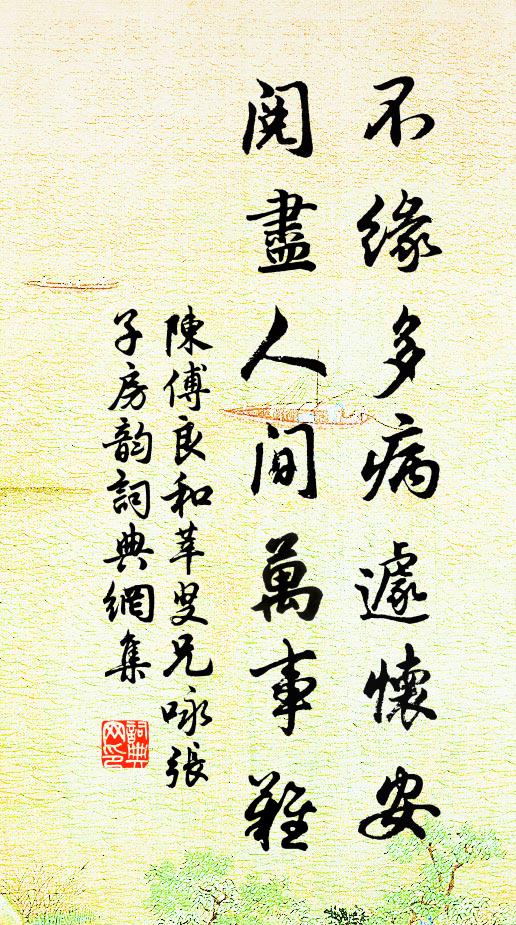 不緣多病遽懷安
閱盡人間萬事難
陳傅良和莘叟兄咏張
子房韵詞典網集
詞典
网印